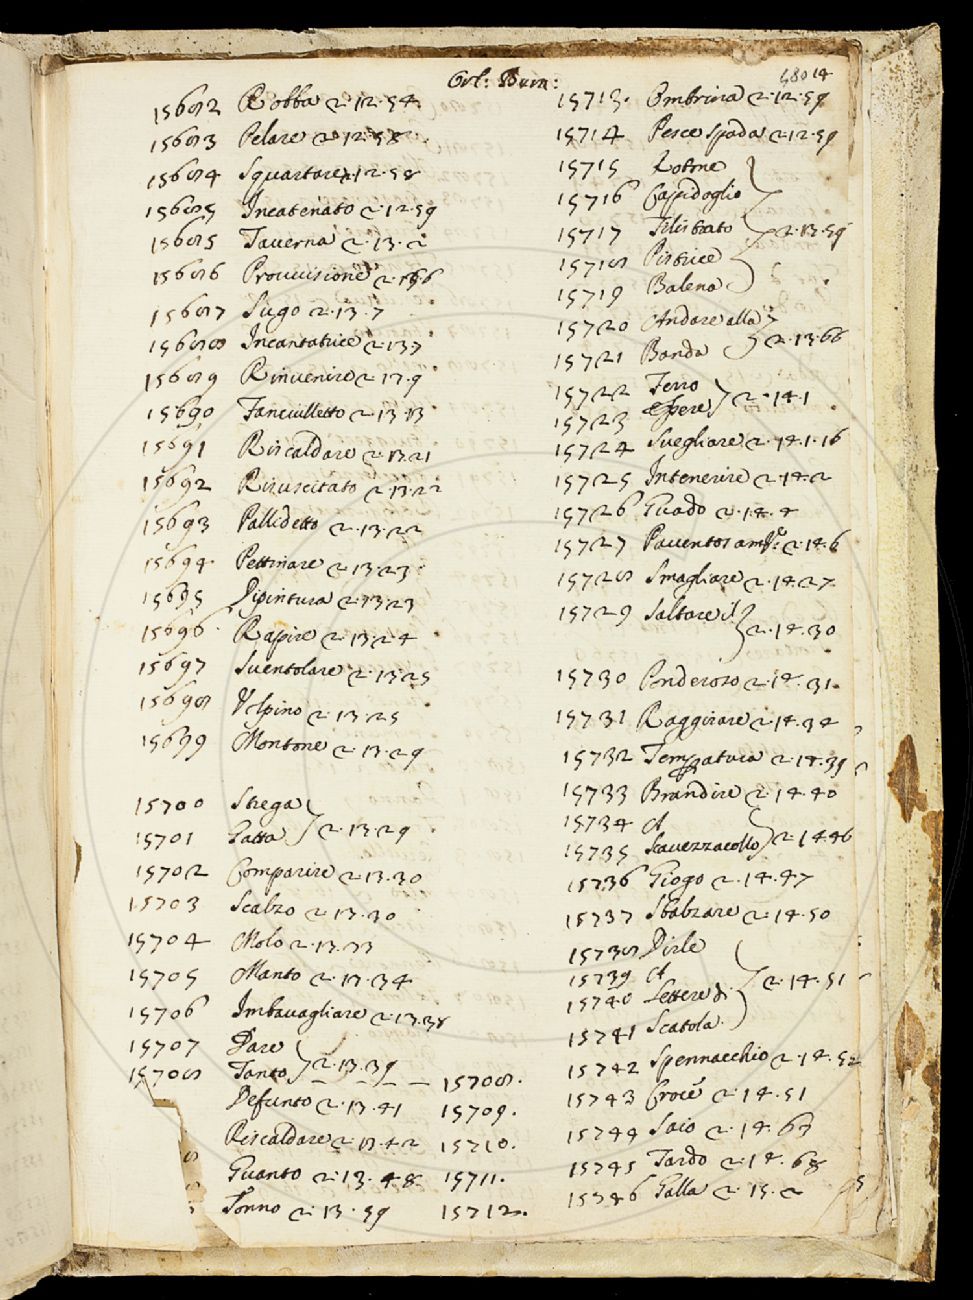 Orl: Buin:
48014
15682 Robba 2.12.54
15683 Pelare 2.12.58
15684 Squartare 2.12.58
15685 Incatenato 2.12.59
15685 Taverna 2.13.2
15686 Provvisione 2.13.6
15687 Sugo 2.13.7
15688 Incantatrice 2.13.7
15689 Rinvenire 2.13.9
15690 Fanciulletto 2.13.13
15691 Riscaldare 2.13.21
15692 Risuscitato 2.13.22
15693 Pallidetto 2.13.22
15694 Pettinare 2.13.23
15695 Dipintura 2.13.23
15696 Rapire 2.13.24
15697 Sventolare 2.13.25
15698 Volpino 2.13.25
15699 Montone 2.13.29
15700 Strega
15701 Gatta 2.13.29
15702 Comparire 2.13.30
15703 Scalzo 2.13.30
15704 Molo 2.13.33
15705 Manto 2.13.34
15706 Imbavagliare 2.13.38
15707 Dare
15708 Tanto 2.13.39 15708.
Defunto 2.13.41 15709.
Riscaldare 2.13.42 15710.
Guanto 2.13.48 15711.
Tonno 2.13.59 15712.
15713. Ombrina 2.12.59
15714 Pesce Spada 2.12.59
15715
15716 Capidoglio
15717 2.13.59
15718 Pistrice
15719 Balena
15720 Andare alla
15721 Banda 2.13.66
15722 Ferro
15723 Essere 2.14.1
15724 Svegliare 2.14.1.16
15725 Intenerire 2.14.2
15726 Guado 2.14.4
15727 2.14.6
15728 Smagliare 2.14.27
15729 Saltare il 2.14.30
15730 Ponderoso 2.14.31.
15731 Raggirare 2.14.34
15732 Temperatura 2.14.39
15733 Brandire 2.14.40
15734 A
15735 Scavezzacollo 2.14.46
15736 Giogo 2.14.47
15737 Sbalzare 2.14.50
15738 Dirle
15739 A
15740 Lettere di 2.14.51
15741 Scatola.
15742 Spennacchio 2.14.52
15743 Croce 2.14.51
15744 Saio 2.14.63
15745 Tardo 2.14.68
15746 Galla 2.15.2